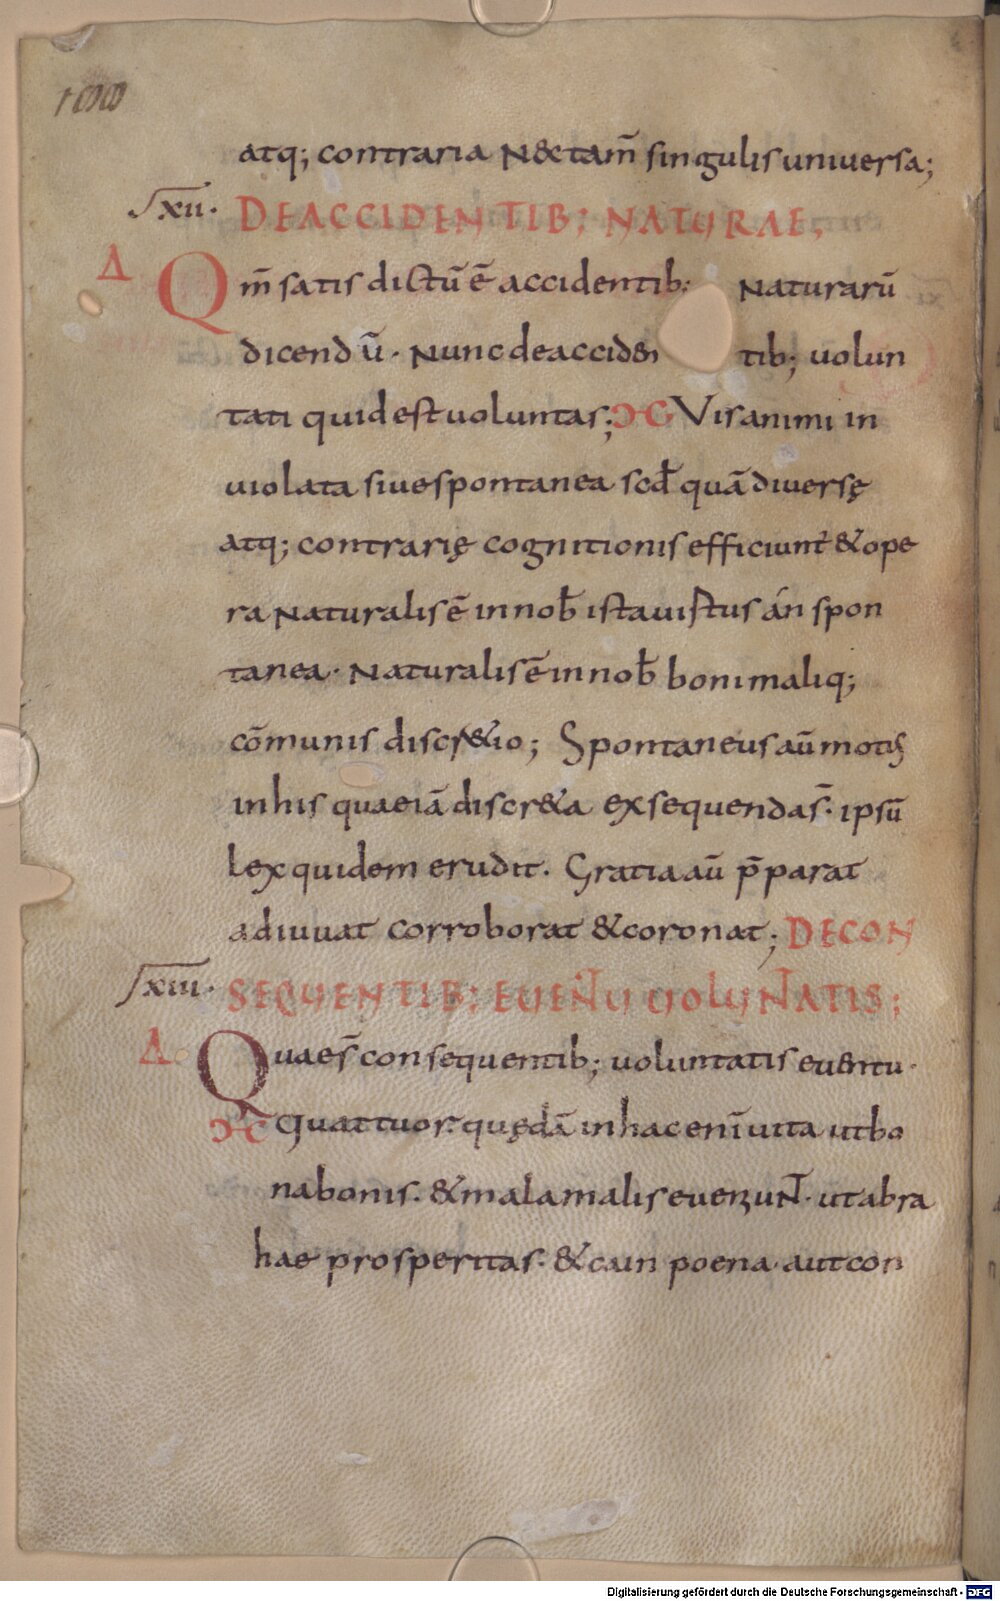 atq; contraria N&tam̄ singulis uniuersa;
xii. DE ACCIDENTIB; NATURAE;
Δ Qm̄ satis dictū ē accidentib; Naturarū
dicendū. Nunc de acciden tib; uolun
tati quid est uoluntas; ƆC Vis animi in
uiolata siue spontanea scd̄ quā diuersę
atq; contrarię cognitionis efficiunt̄ & ope
ra Naturalis ē in nob̄ ista uis tus án spon
tanea. Naturalis ē in nob̄ boni maliq;
cōmunis discr&io; Spontaneus aū motus
in his quae iā discr&a exsequendas̄. ipsū
lex quidem erudit. Gratia aū p̄parat
adiuuat corroborat & coronat; DE CON
xiii. SEQUENTIB; EUENTU UOLUNTATIS;
Δ Quaes̄ consequentib; uoluntatis euentu.
ƆC Quattuor. quędā in hac enī uita ut bo
na bonis. & mala malis euenIunt. ut abra
hae prosperitas. & cain poena. aut con
Digitalisierung gefördert durch die Deutsche Forschungsgemeinschaft - DFG